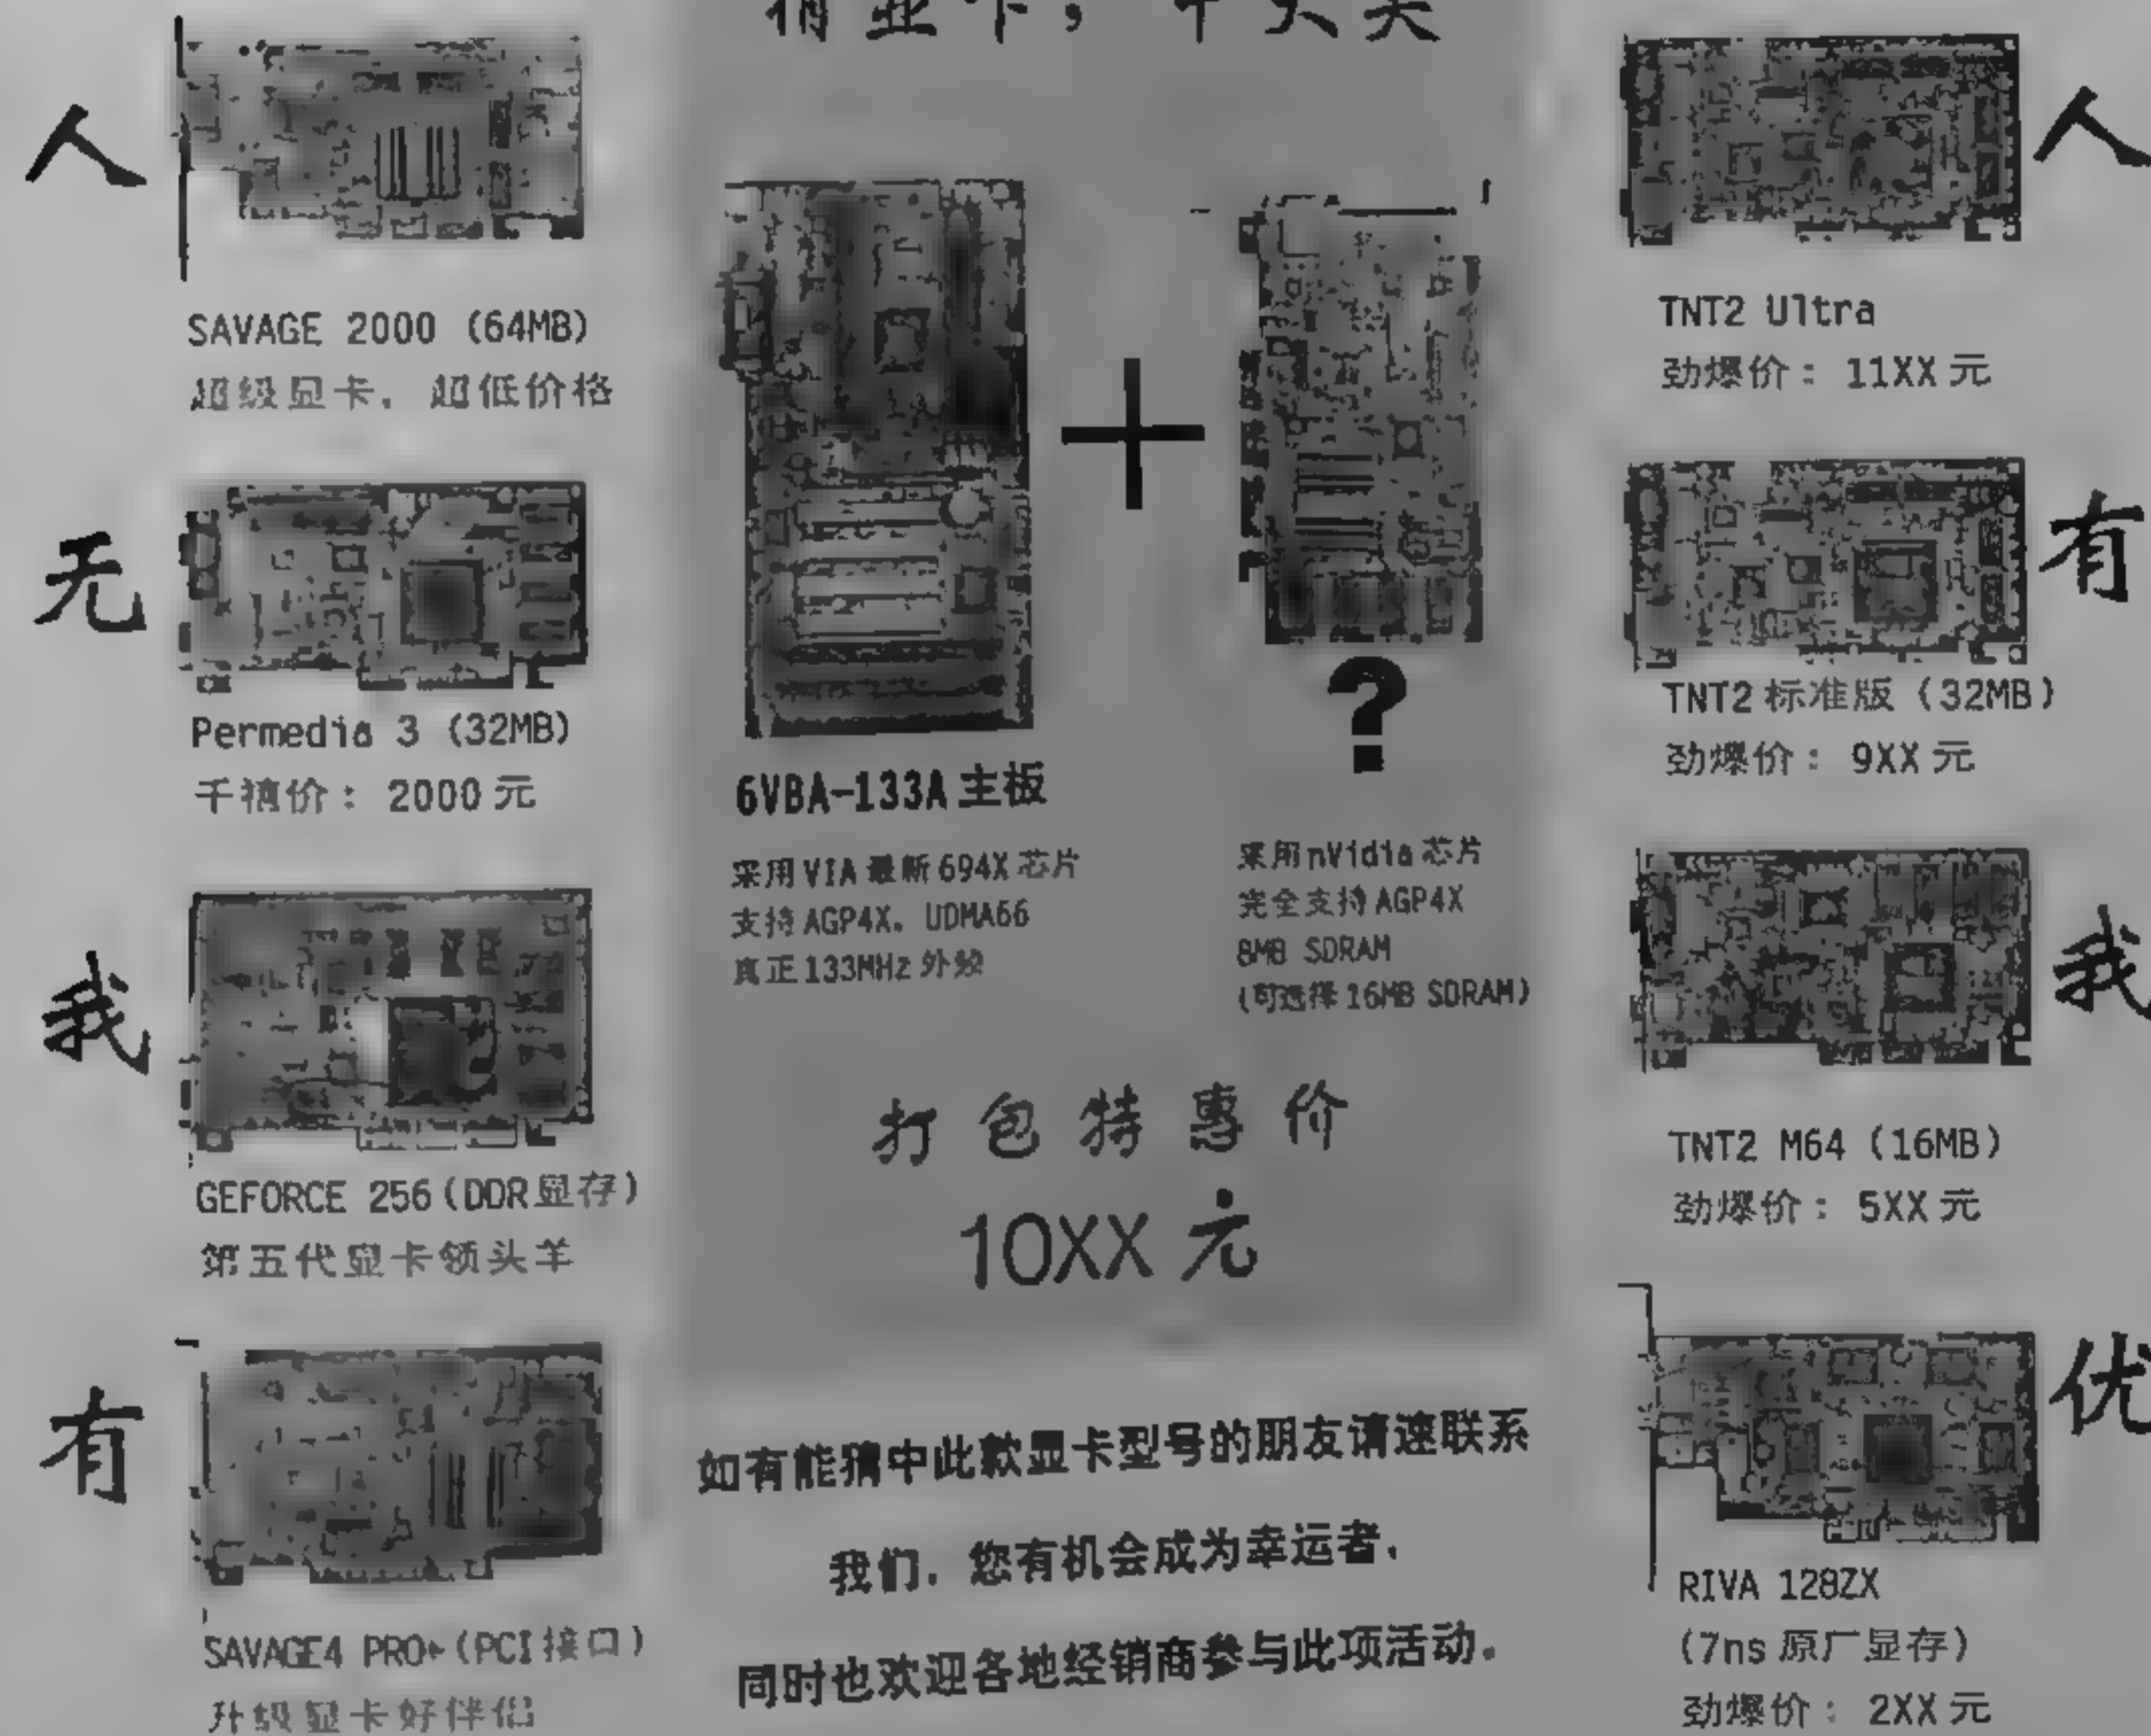 猜显卡，中大奖
人
无
我
有
SAVAGE 2000 (64MB)
超级显卡，超低价格
Permedia 3 (32MB)
千禧价：2000元
GEFORCE 256(DDR显存)
第五代显卡领头羊
SAVAGE4 PRO+(PCI接口)
升级显卡好伴侣
+
?
6VBA-133A主板
采用VIA最新694X芯片
支持AGP4X，UDMA66
真正133MHz外频
采用nVidia芯片
完全支持AGP4X
8MB SDRAM
(可选择16MB SDRAM)
打包特惠价
10XX元
如有能猜中此款显卡型号的朋友请速联系
我们，您有机会成为幸运者，
同时也欢迎各地经销商参与此项活动。
TNT2 Ultra
劲爆价：11XX元
TNT2标准版(32MB)
劲爆价：9XX元
TNT2 M64(16MB)
劲爆价：5XX元
RIVA 128ZX
(7ns原厂显存)
劲爆价：2XX元
人
有
我
优